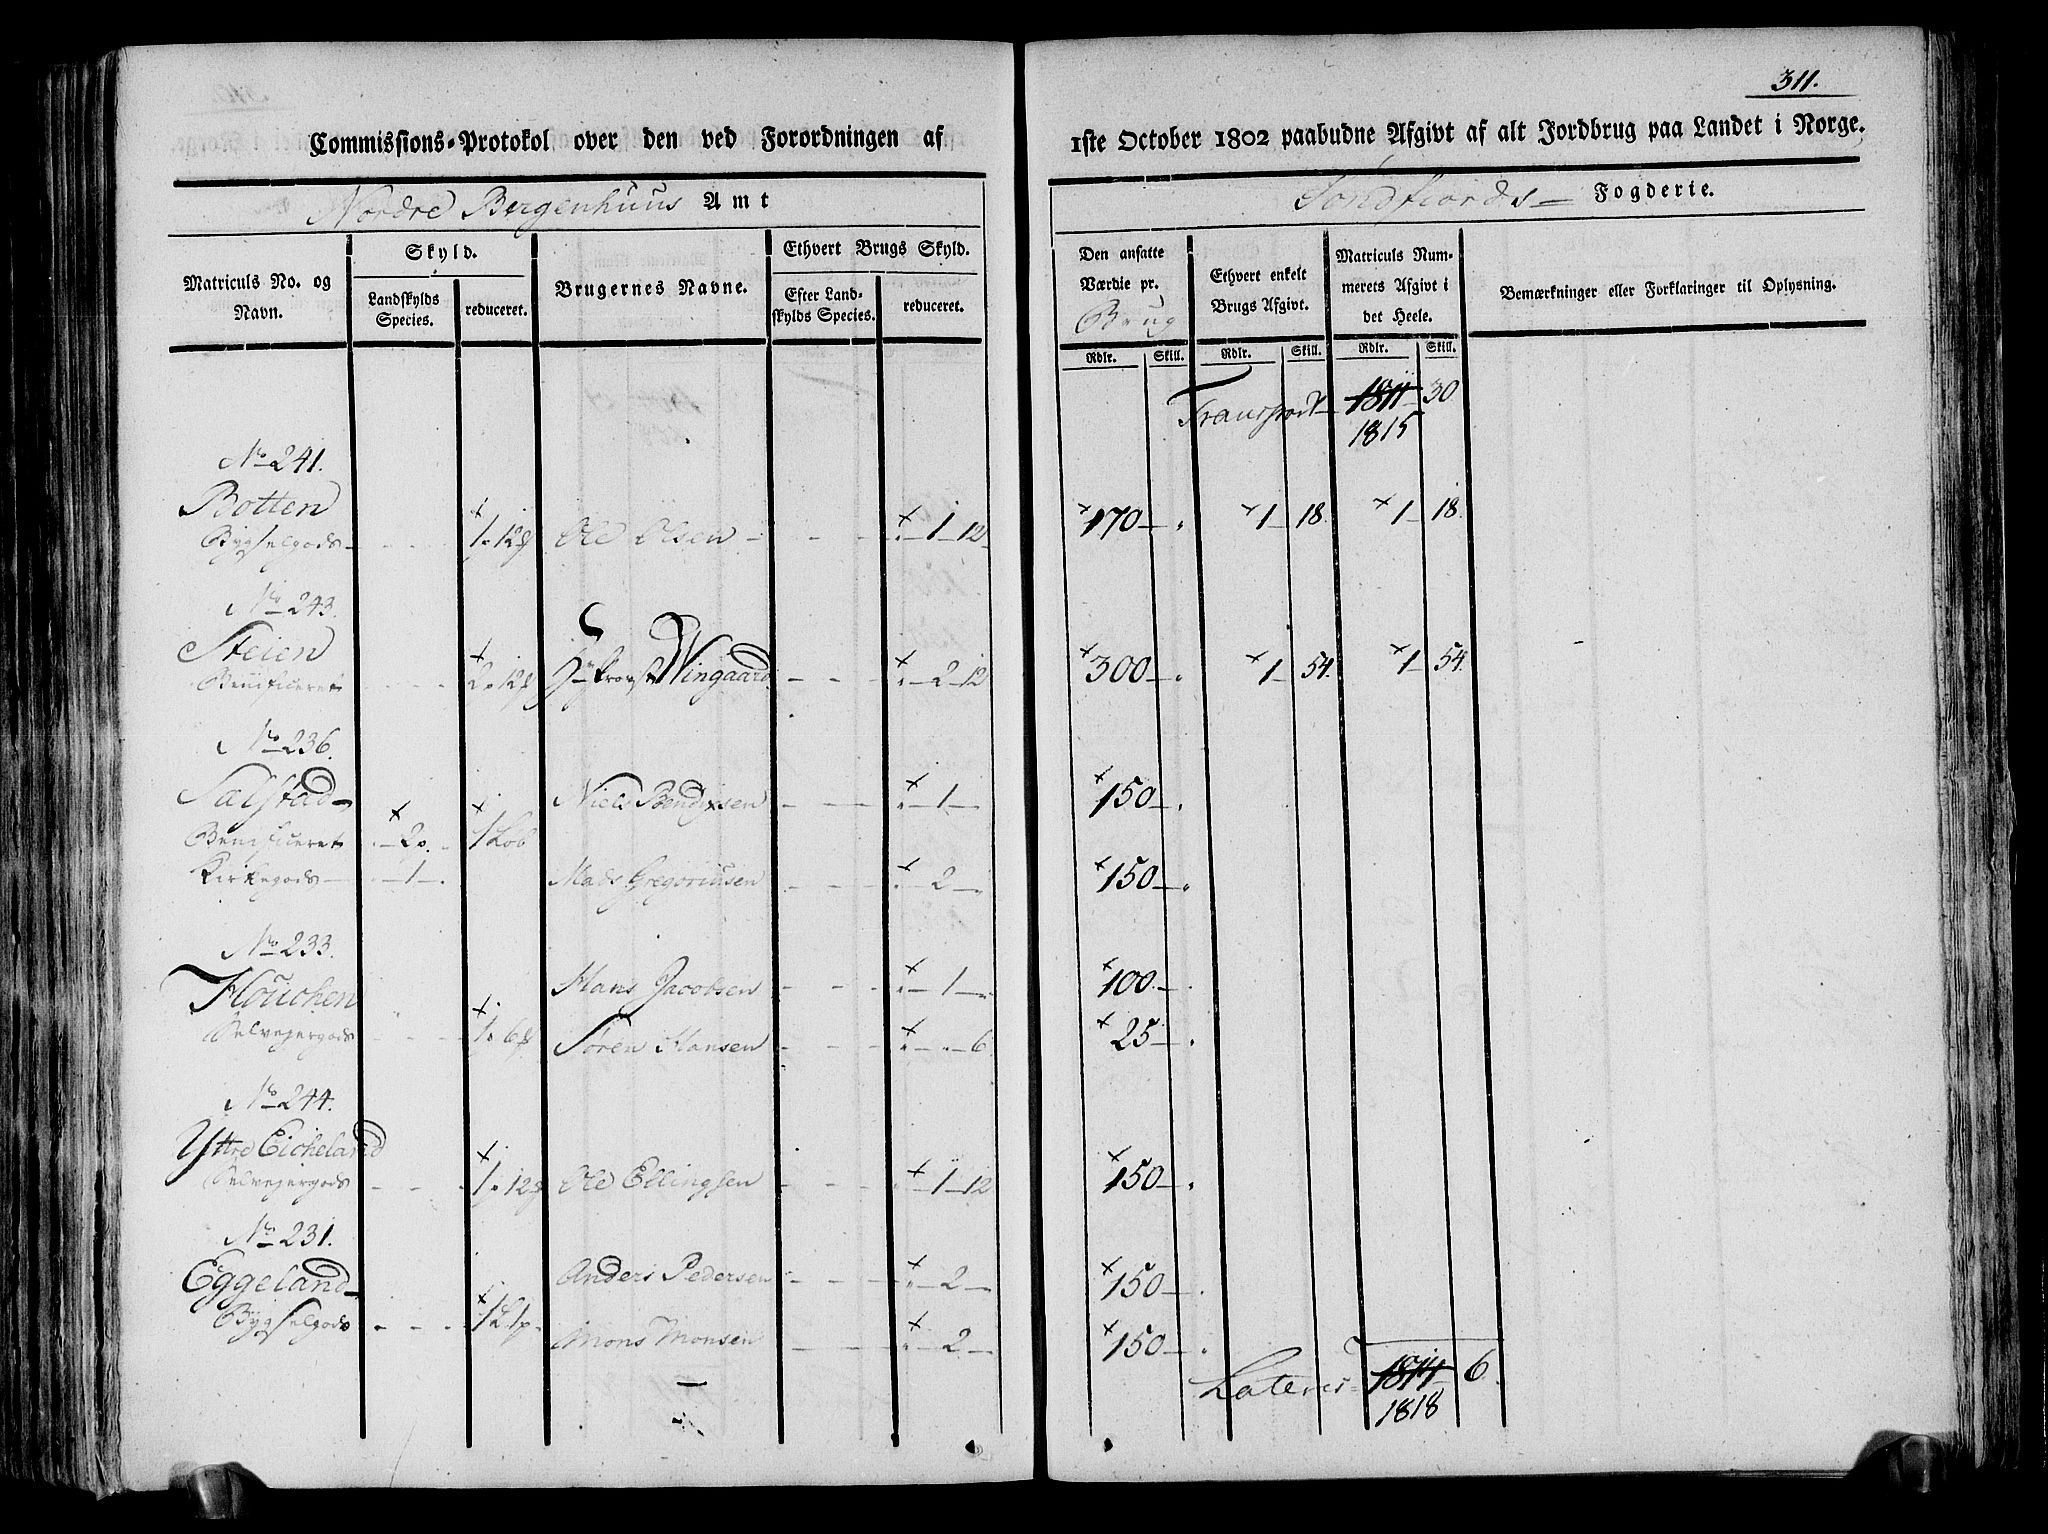 311.
Commissions-Protokol over den ved Forordningen af 1ste October 1802 paabudne Afgivt af alt Jordbrug paa Landet i Norge.
Nordre Bergenhuus Amt Sondfiords Fogderie.
Matriculs No. og Navn.
Skyld.
Landskylds Species.
reduceret.
Brugernes Navne.
Ethvert Brugs Skyld.
Efter Landskylds Species.
reduceret.
Den ansatte Værdie pr. Brug
Rdlr. Skill.
Ethvert enkelt Brugs Afgivt.
Rdlr. Skill.
Matriculs Nummerets Afgivt i det Heele.
Rdlr. Skill.
Bemærkninger eller Forklaringer til Oplysning.
Transport 1811 30
1815
No 241.
Botten
Bygselgods 1 12 Ole Olsen 1 12 170 1 18. 1 18.
No 243.
Steien
Benificeret 2 12 Wingaard 2 12 300 1 54. 1 54.
No 236.
Sælstad
Niels Bendixsen 1 150
Benificeret 2 1 Lob
Kirkegods 1 Mads Gregoriusen 2 150
No 233.
Houchen
Hans Jacobsen 1 100
Selvejergods 1 6 Søren Hansen 6 25
No 244.
Yttre Eicheland
Selvejergods 1 12 Ole Ellingsen 1 12 150
No 231.
Eggeland
Anders Pedersen 2 150
Bygselgods 1 Mons Monsen 2 150
Lateris 1814 6
1818